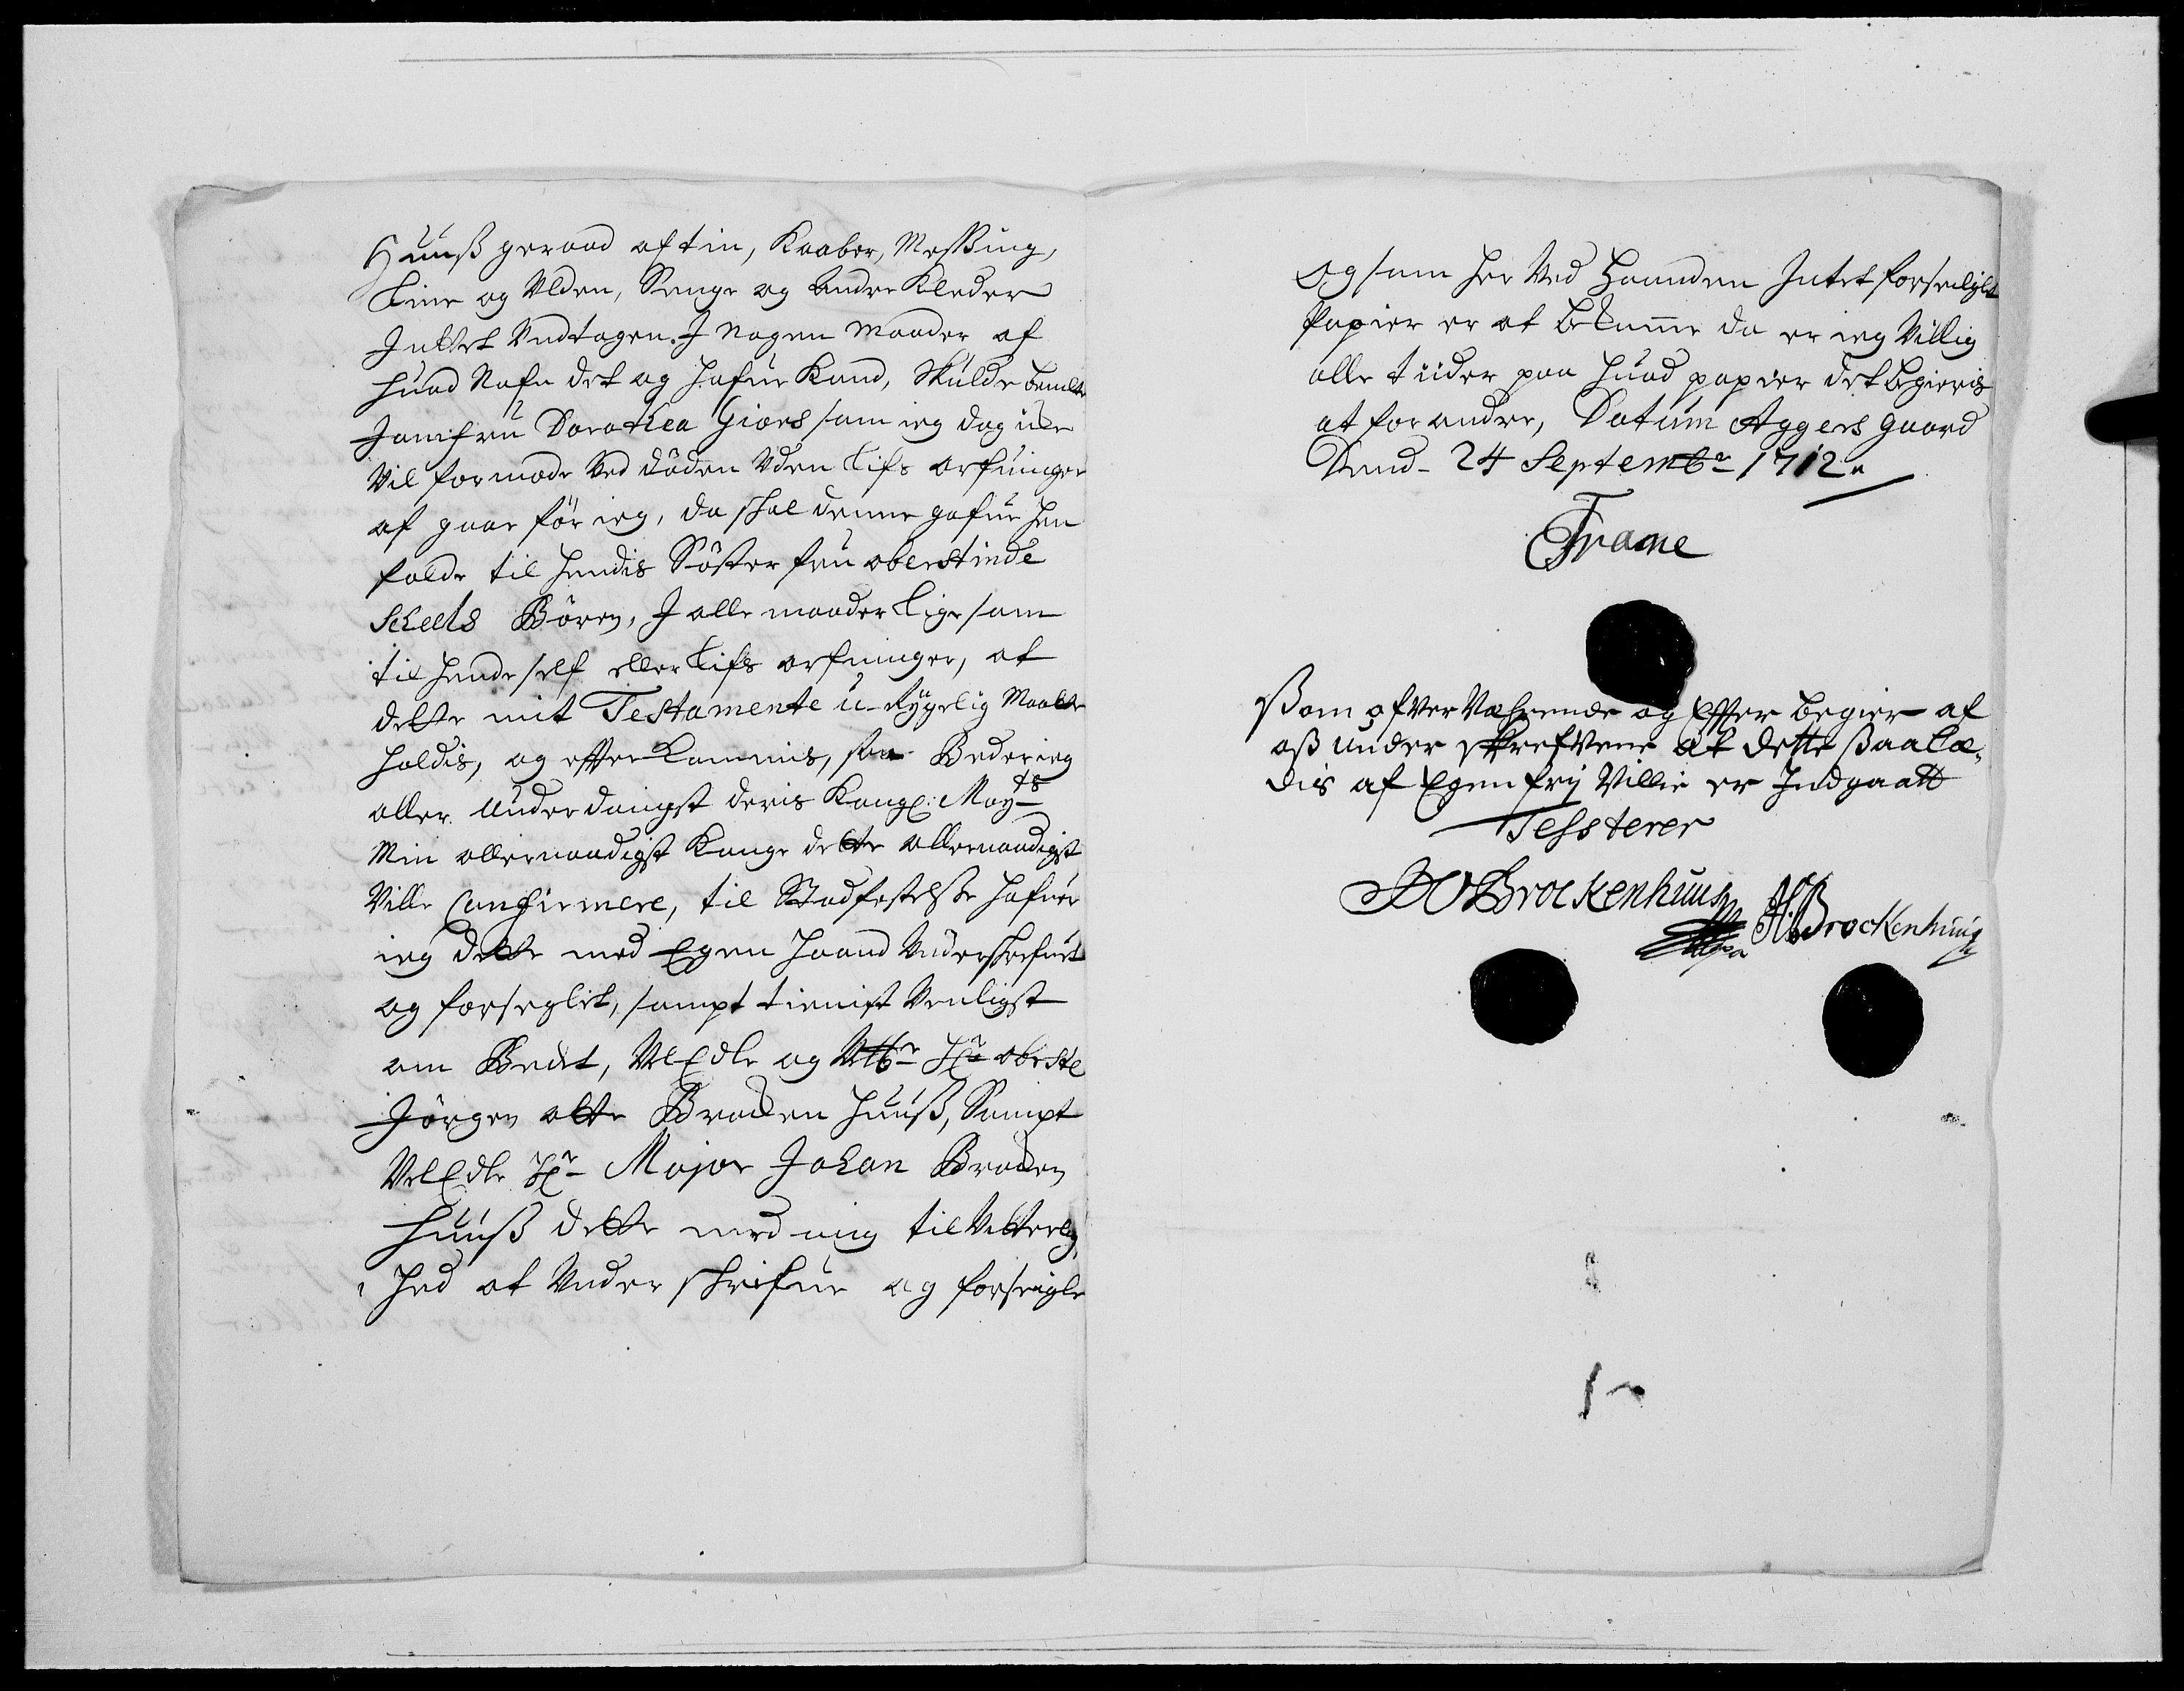 Huuß geraad af tin, Kaaber, Meßing,
Line og Ulden, Senge og andre Kleder
Inttet Undtagen. I Nogen Maader af
huad Nafn det og hafue Kand, Skulde bemlte
Jomfru Dorothea Giøes som ieg dog icke
Vil formode Ved døden Uden Lifs arfuinger
af gaar før ieg, da skal denne gafue hen
falde til hendis Søster fru oberstinde
Scheels Børen, I alle maader lige som
til hende self eller Lifs arfuinger, at
dette mit Testamente u-Rygelig Maatte
holdis, og efterkommis, saa Beder ieg
aller underdanigst deris Kongl: May ts
Min allernaadigst Konge dette allernaadigst
Ville Confirmere, til Stadfestelße hafuer
ieg dette med Egen Haand Underskrefuet
og forseglet, sampt tienist Venligst
om Bedet, VelEdle og Velbr Hr oberste
Jørgen otte Brocken huuß, Sampt
VelEdle Hr Major Johan Brocken
huuß dette med mig til Vitterlig
hed at Under skrifue og forseigle
og som her Ved Haanden Intet forseiglet
Papier er at bekomme da er ieg Villig
alle tiider paa huad papier det begieris
at forandre, Datum Aggers gaard
Dend 24 Septembr 1712
Trane
ßom ofver Værende og Efter begier af
oß under skrefvene at dette ßaalæ-
dis af Egen frij Villie er Indgaatt
Tessterer
JO Brockenhuus
H. Brockenhuus